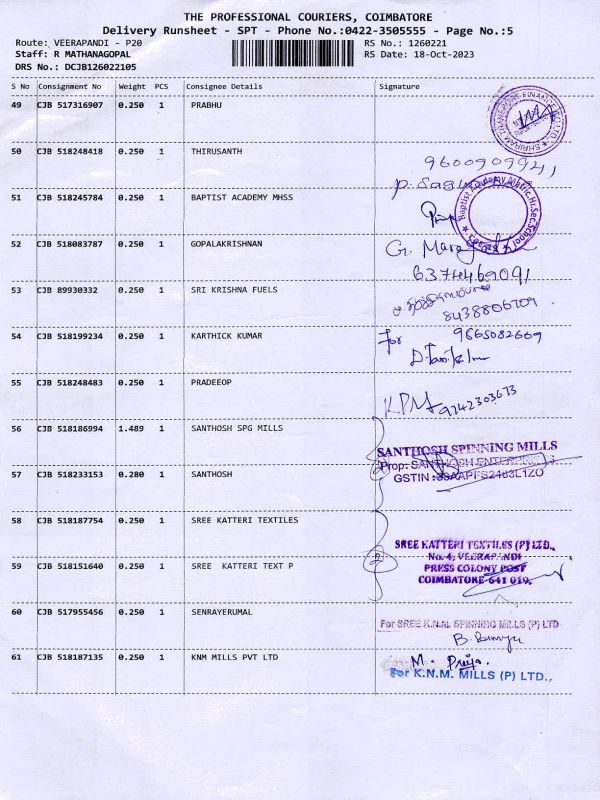 THE PROFESSIONAL COURIERS, COIMBATORE
Delivery Runsheet - SPT - Phone No.:0422-3505555 - Page No.:5
Route: VEERAPANDI - P20 RS No.: 1260221
Staff: R MATHANAGOPAL RS Date: 18-Oct-2023
DRS No.: DCJB126022105
S No Consignment No Weight PCS Consignee Details Signature
49 CJB 517316907 0.250 1 PRABHU
50 CJB 518248418 0.250 1 THIRUSANTH
9600909941
51 CJB 518245784 0.250 1 BAPTIST ACADEMY MHSS
Baptist Academy Matric.Hr.Sec.School
52 CJB 518083787 0.250 1 GOPALAKRISHNAN
6374469091
53 CJB 89930332 0.250 1 SRI KRISHNA FUELS
8438806709
54 CJB 518199234 0.250 1 KARTHICK KUMAR
For 9865082669
55 CJB 518248483 0.250 1 PRADEEOP
KPM 9742303673
56 CJB 518186994 1.489 1 SANTHOSH SPG MILLS
SANTHOSH SPINNING MILLS
57 CJB 518233153 0.280 1 SANTHOSH
Prop: SANTHOSH
GSTIN
58 CJB 518187754 0.250 1 SREE KATTERI TEXTILES
SREE KATTERI TEXTILES (P) LTD.,
59 CJB 518151640 0.250 1 SREE KATTERI TEXT P
2
No.4, VEERAPANDI
PRESS COLONY POST
COIMBATORE-641 019.
60 CJB 517955456 0.250 1 SENRAYERUMAL
For SREE K.N.M. SPINNING MILLS (P) LTD
61 CJB 518187135 0.250 1 KNM MILLS PVT LTD
M. Priya.
For K.N.M. MILLS (P) LTD.,